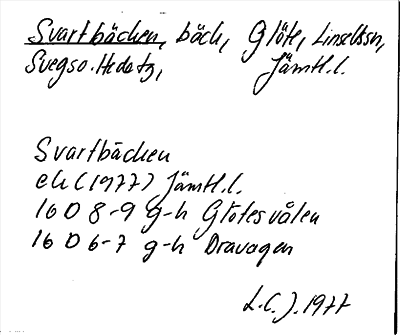 Svartbäcken, bäck, Glöte, Linsellssn,
Svegso. Hedetg, Jämtl.l.
Svartbäcken
ek (1977) Jämtl.l.
16 D 8-9 g-h Glötesvålen
16 D 6-7 g-h Dravagen
L.C.J. 1977